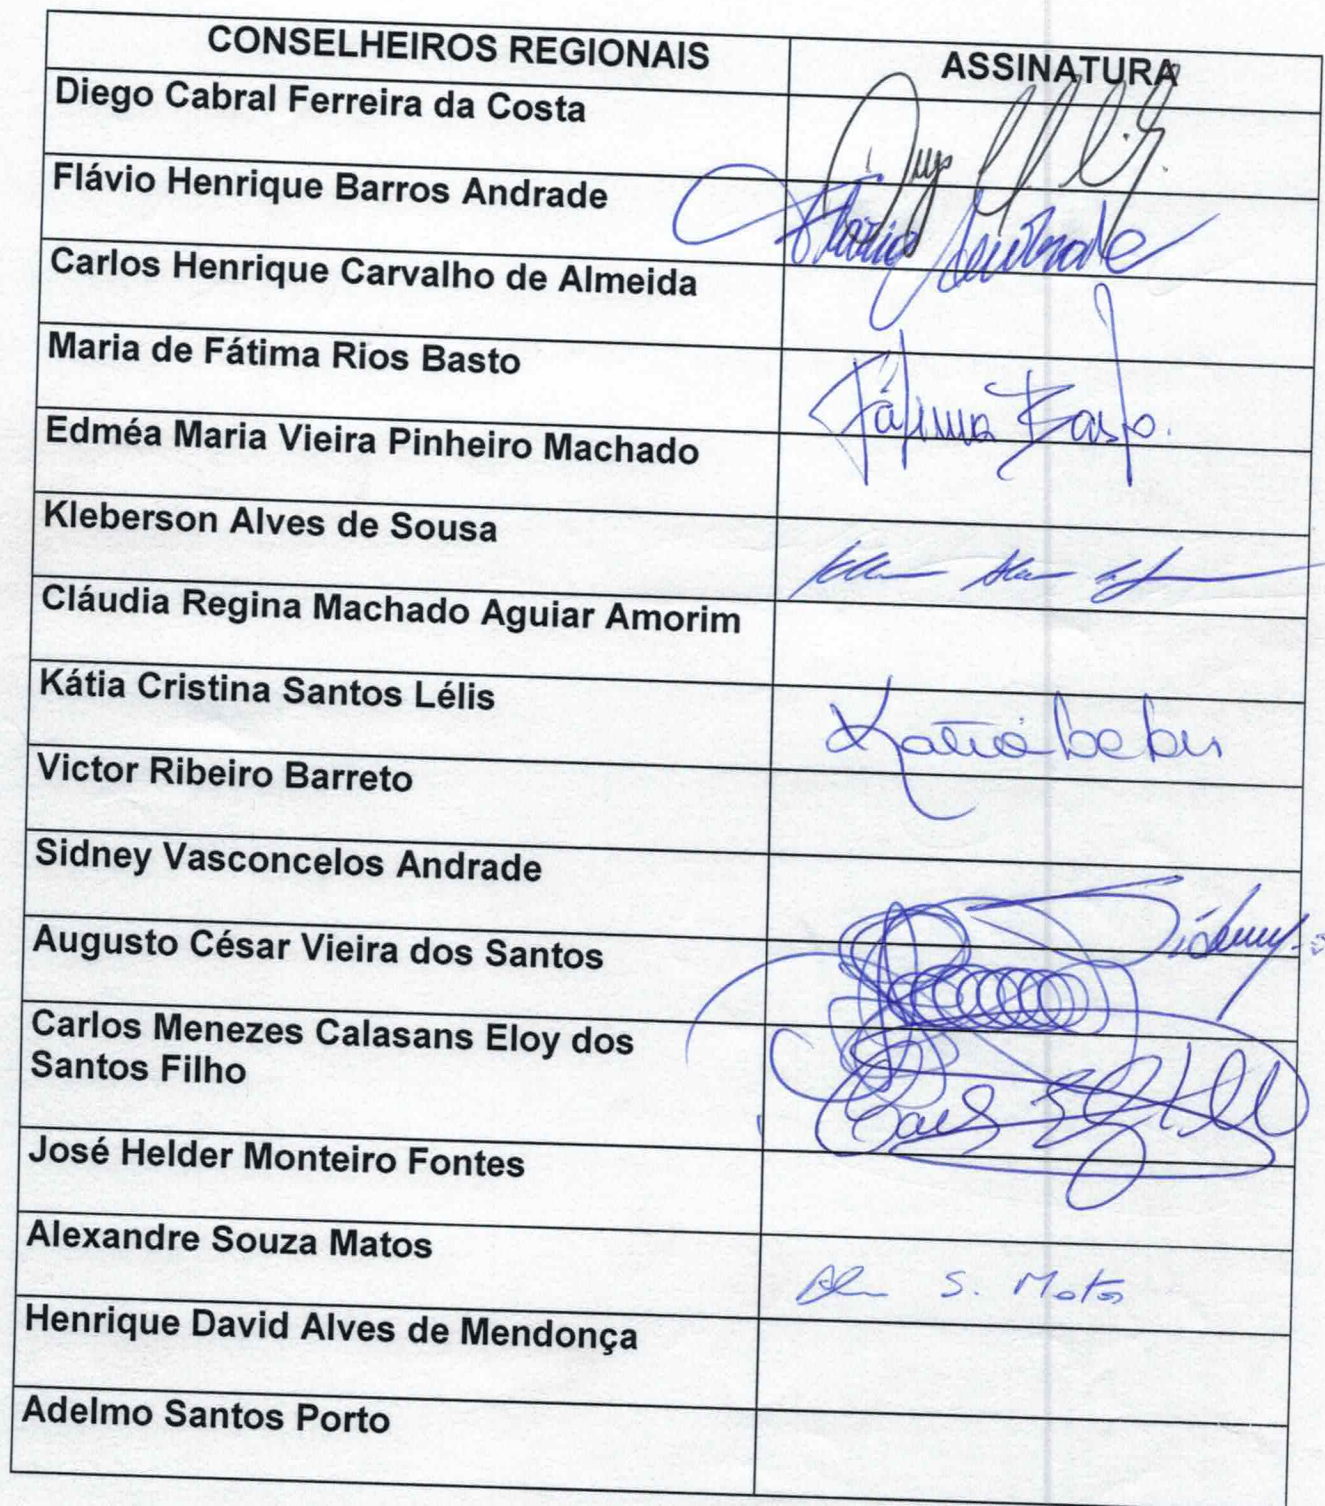 CONSELHEIROS REGIONAIS ASSINATURA
Diego Cabral Ferreira da Costa
Flávio Henrique Barros Andrade Flávio Andrade
Carlos Henrique Carvalho de Almeida
Maria de Fátima Rios Basto Fátima Basto.
Edméa Maria Vieira Pinheiro Machado
Kleberson Alves de Sousa
Cláudia Regina Machado Aguiar Amorim
Kátia Cristina Santos Lélis Katia
Victor Ribeiro Barreto
Sidney Vasconcelos Andrade Sidney
Augusto César Vieira dos Santos
Carlos Menezes Calasans Eloy dos
Santos Filho
José Helder Monteiro Fontes
Alexandre Souza Matos S. Matos
Henrique David Alves de Mendonça
Adelmo Santos Porto